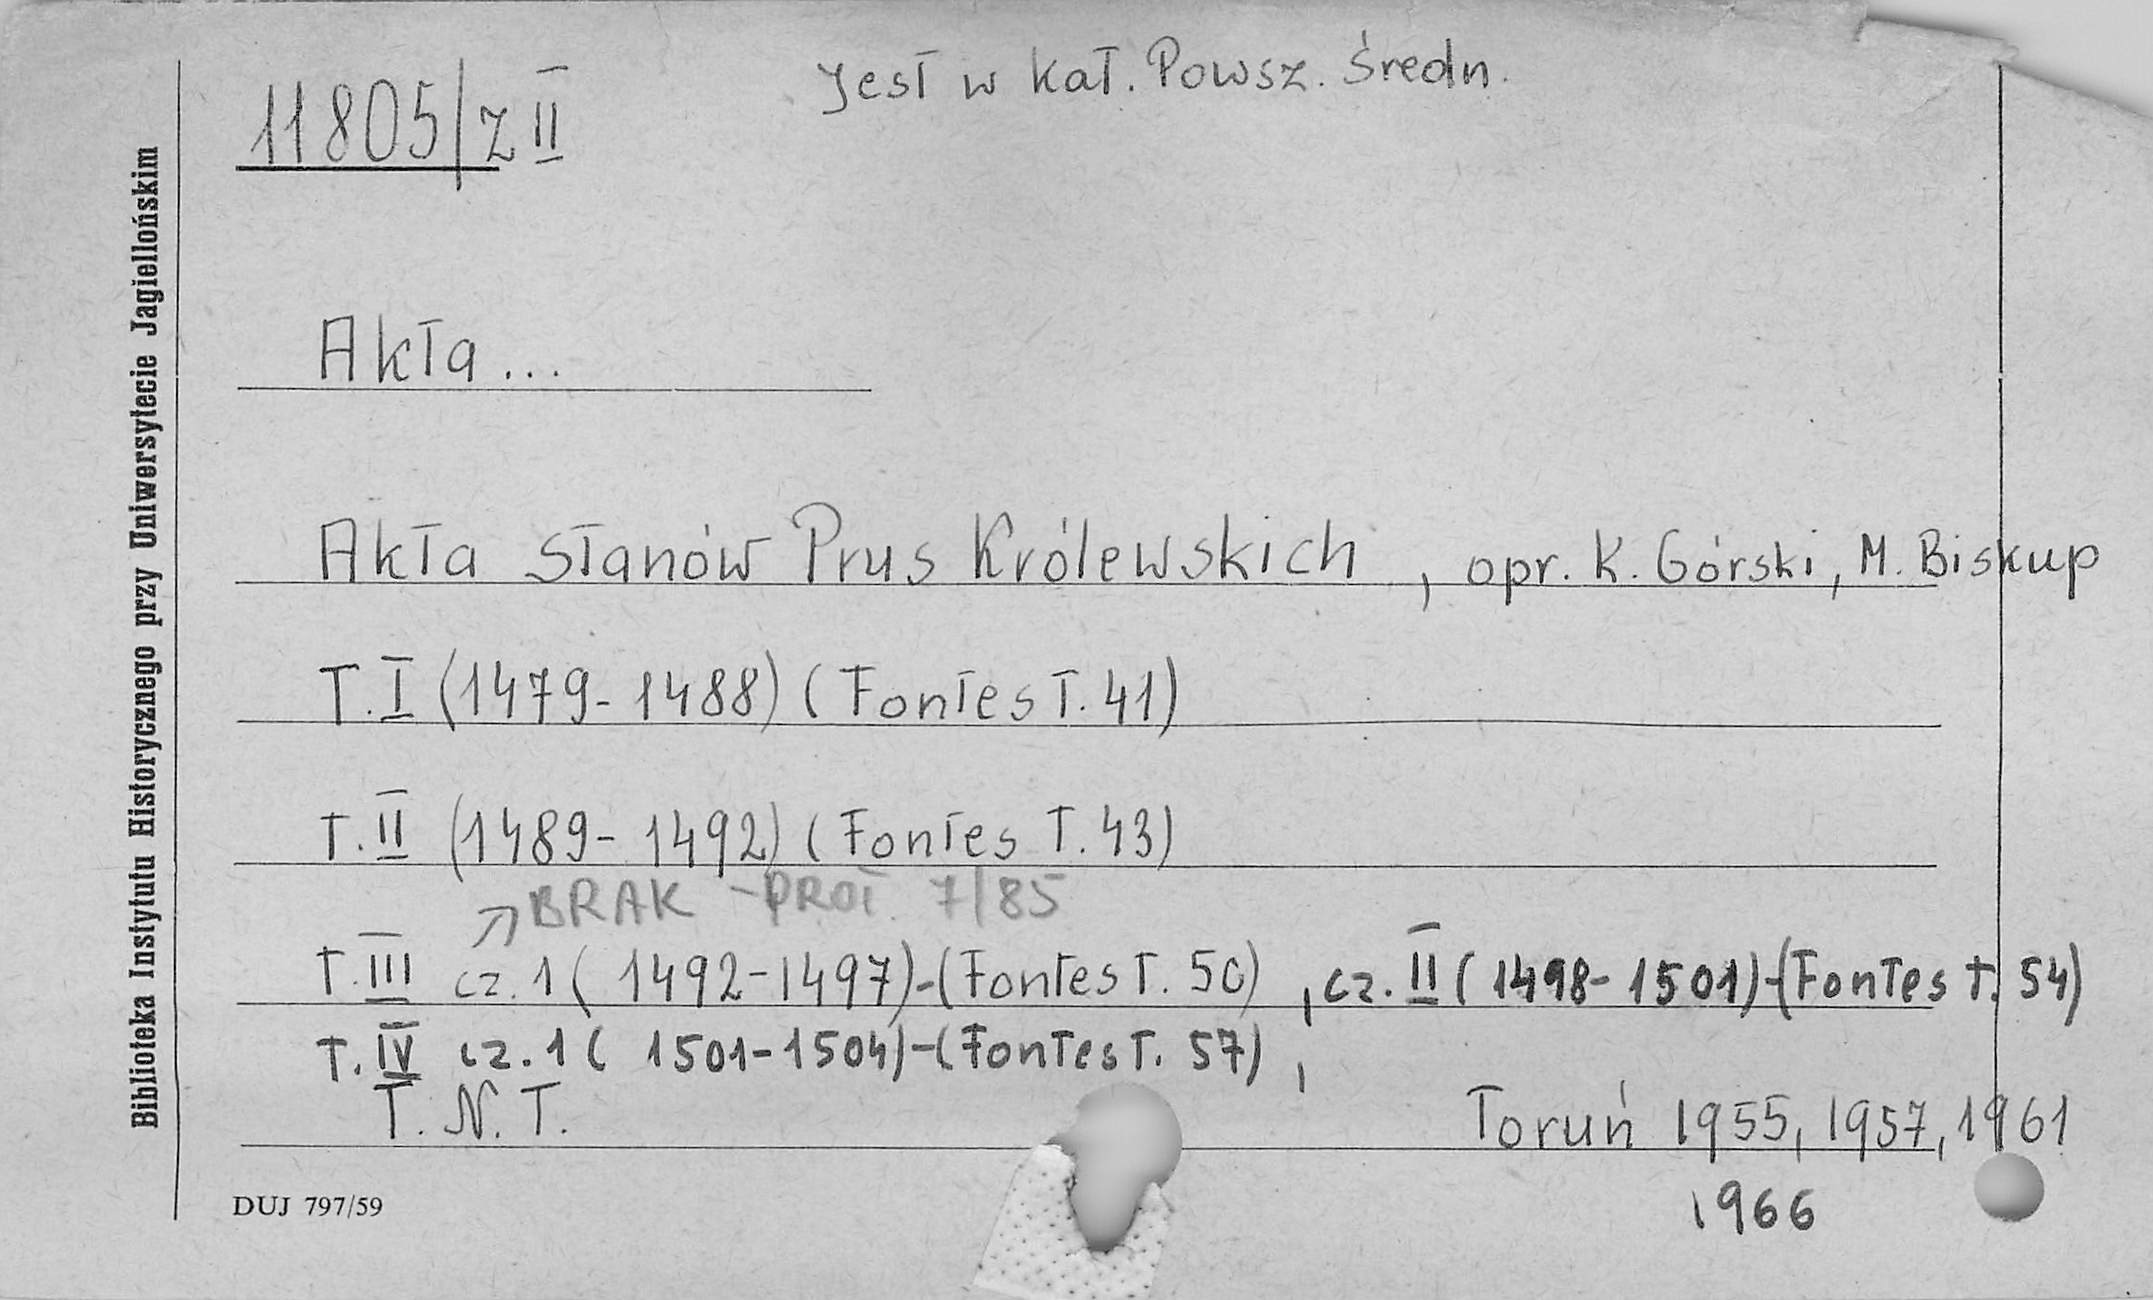 Jest w kat. Powsz. Średn.
11805/z II
Akta...
Akta Stanów Prus Królewskich, opr. K. Górski, M. Biskup
T. I (1479-1488) (Fontes T. 41)
T. II (1489-1492) (Fontes T. 43)
↗ BRAK - PROT. 7/85
T. III cz. 1 (1492-1497)-(Fontes T. 50), cz. II (1498-1501)-(Fontes t. 54)
T. IV cz. 1 (1501-1504)-(Fontes T. 57),
T. N. T.
Toruń 1955, 1957, 1961
1966
DUJ 797/59
Biblioteka Instytutu Historycznego przy Uniwersytecie Jagiellońskim